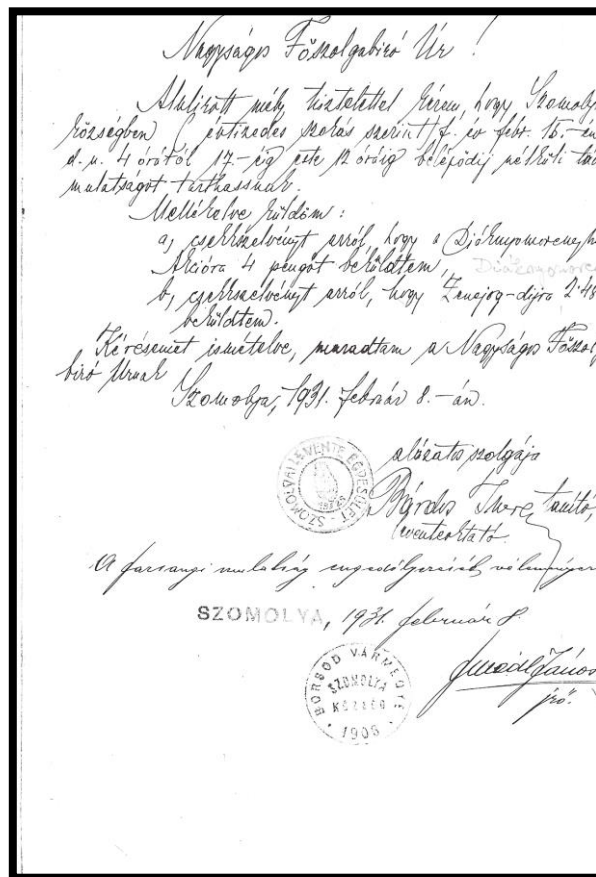 Nagyságos Főszolgabíró Úr!
Alulírott mély tisztelettel kérem, hogy Szomolya
községben (évtizedes szokás szerint) f. év febr. 15.-én
d. u. 4 órától 17-ig este 12 óráig belépődíj nélküli
mulatságot tarthassunk.
Mellékelve küldöm:
a, csekkszelvényt arról, hogy a Diáknyomoreny
Akcióra 4 pengőt beküldtem,
Diáknyomore
b, csekkszelvényt arról, hogy Zenejog-díjra 2.48
beküldtem.
Kérésemet ismételve, maradtam a Nagyságos Főszolg
bíró Úrnak
Szomolya, 1931. február 8.-án.
alázatos szolgája
SZOMOLYAI LEVENTE EGYESÜLET
Bárdos Imre tanító,
leventeoktató.
A farsangi mulatság engedélyezését
SZOMOLYA, 1931. február 8.
BORSOD VÁRMEGYE
SZOMOLYA
KÖZSÉG
1906
János
jző.